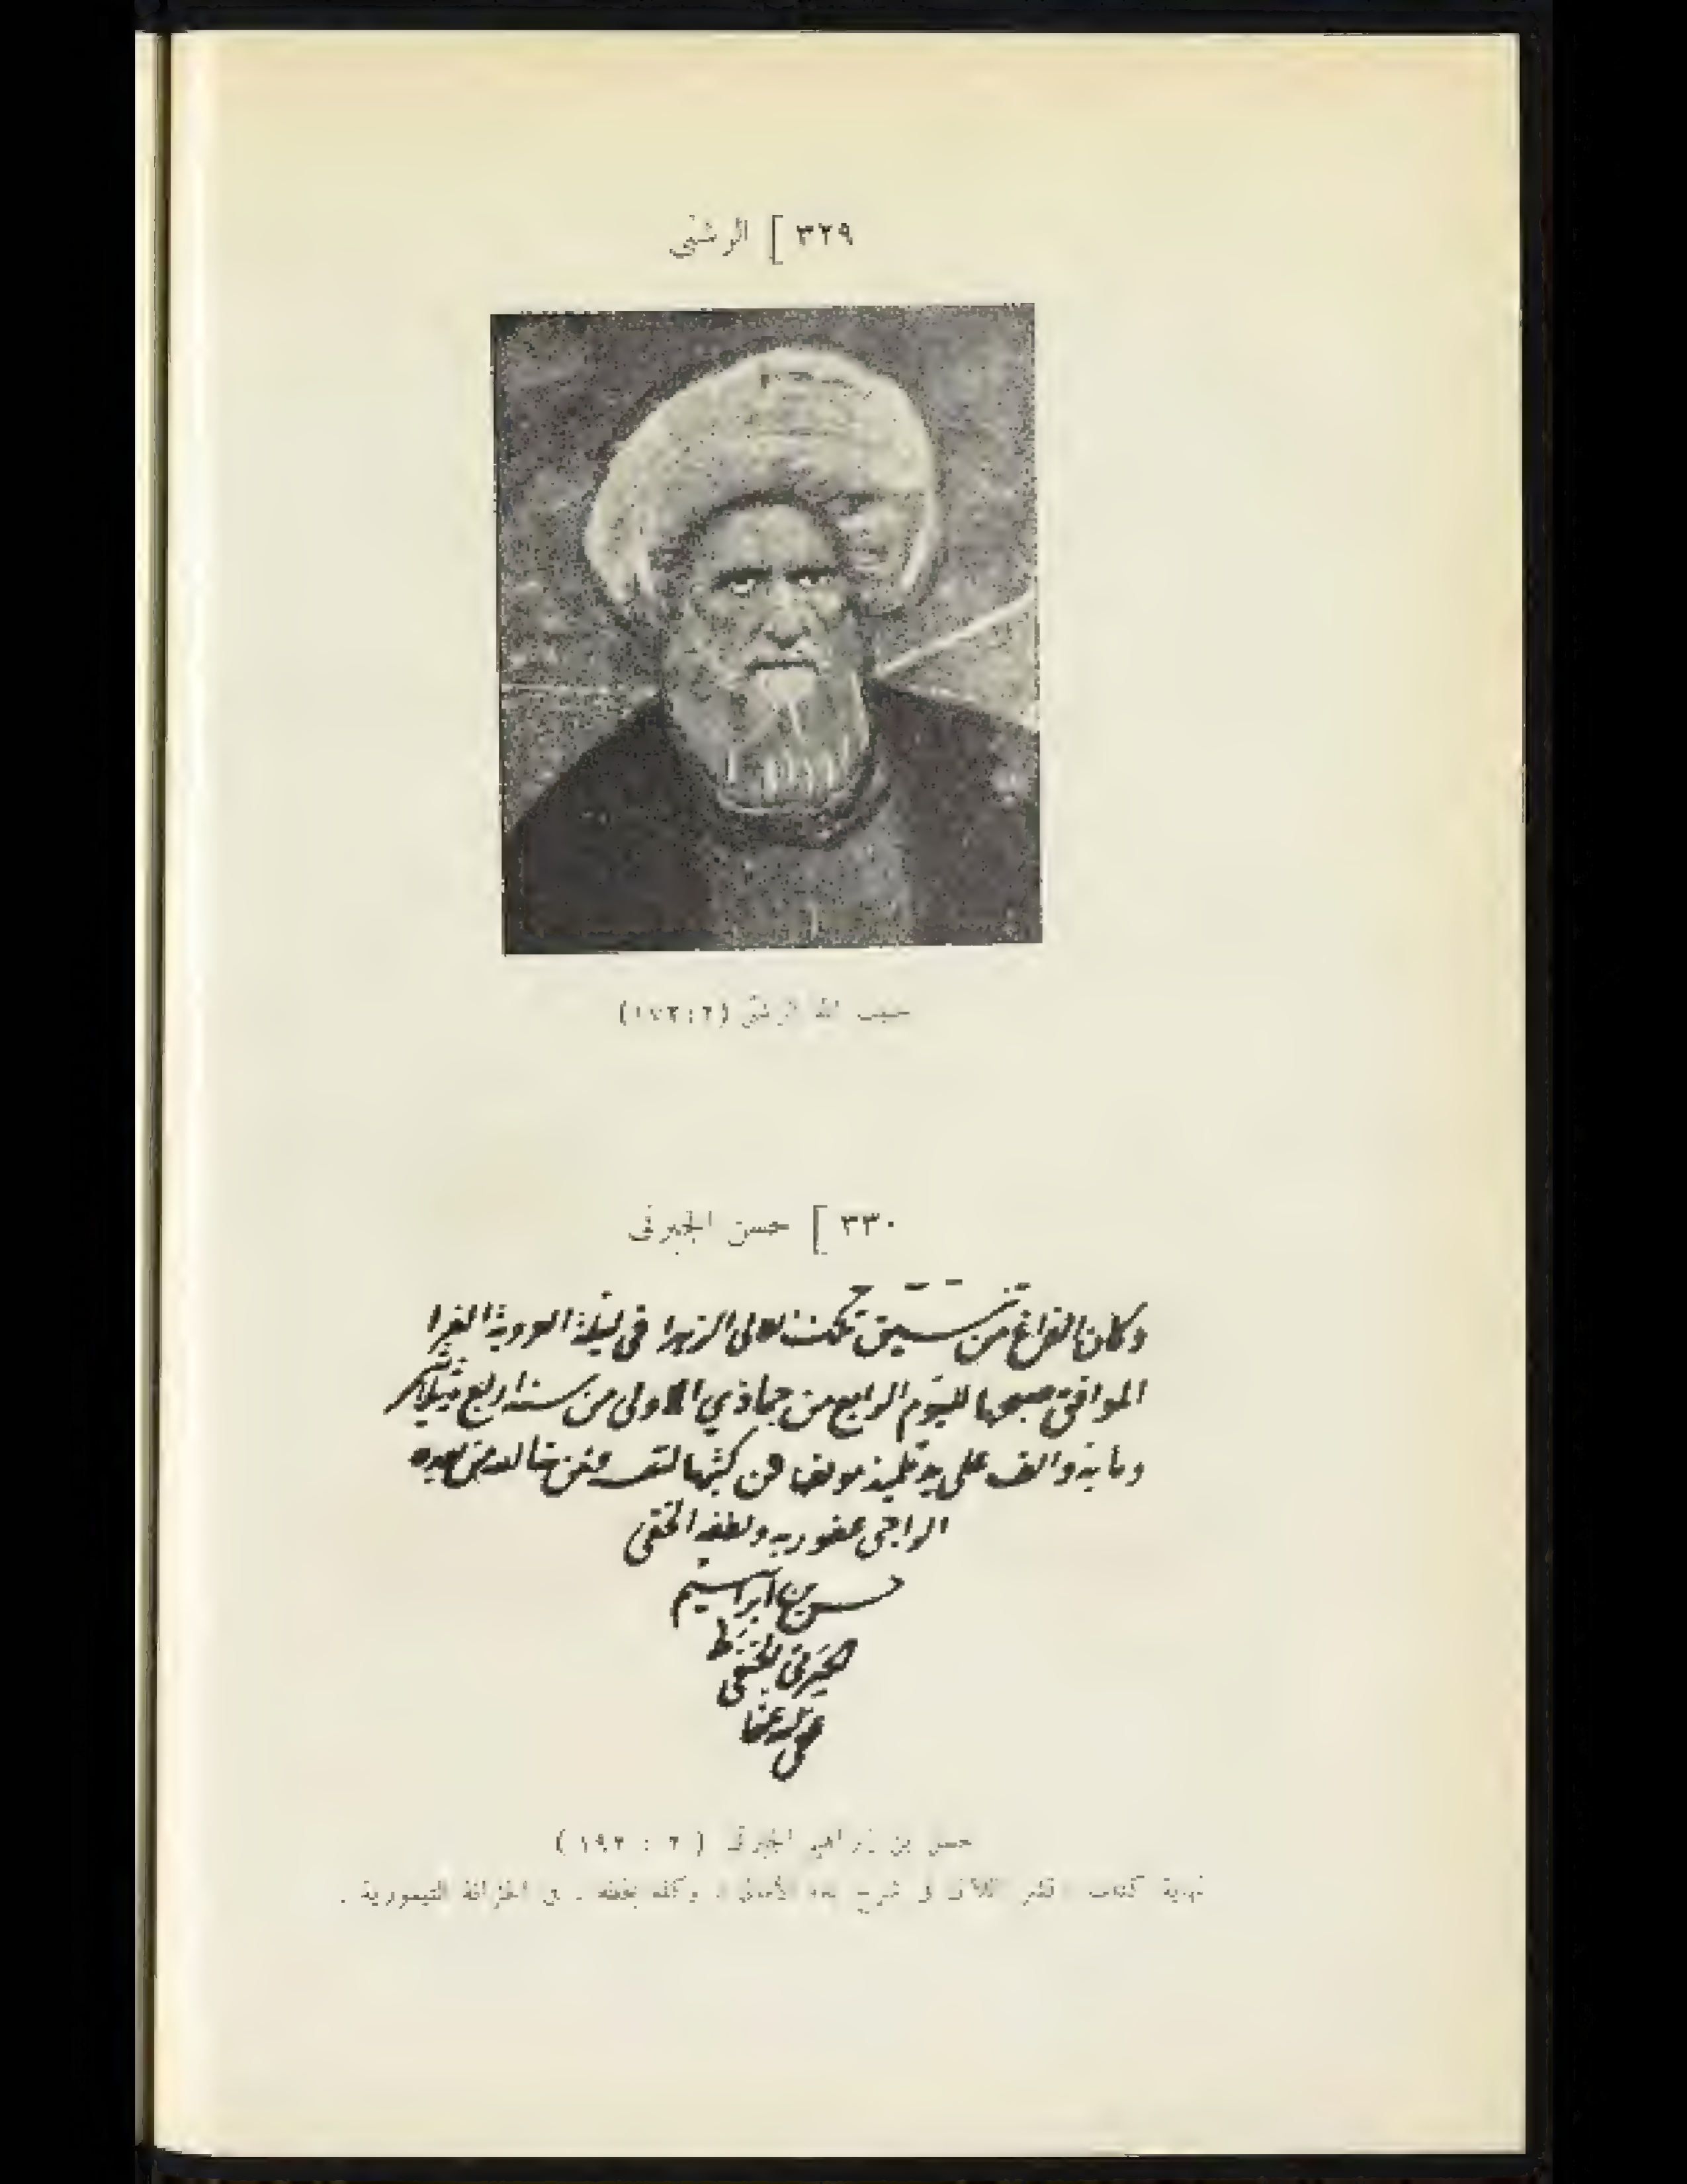 ٣٢٩ [ الرشتي
حبيب الله الرشتي (٢ : ١٧٢)
٣٣٠ [ حسن الجبرتي
وكان الفراغ من في ليلة العروبة الغرا
الموافق صبحها لليوم الرابع من جمادي الاولى من سنة اربع وثلاثين
وماية والف على يد تلميذ مولفها
الراجي عفو ربه ولطفه الخفي
حسن بن ابراهيم
الجبرتي الحنفي
عفا
حسن بن إبراهيم الجبرتي ( ٢ : ١٩٢ )
نهاية كتاب في شرح الأمالي ، وكله بخطه . في الخزانة التيمورية .